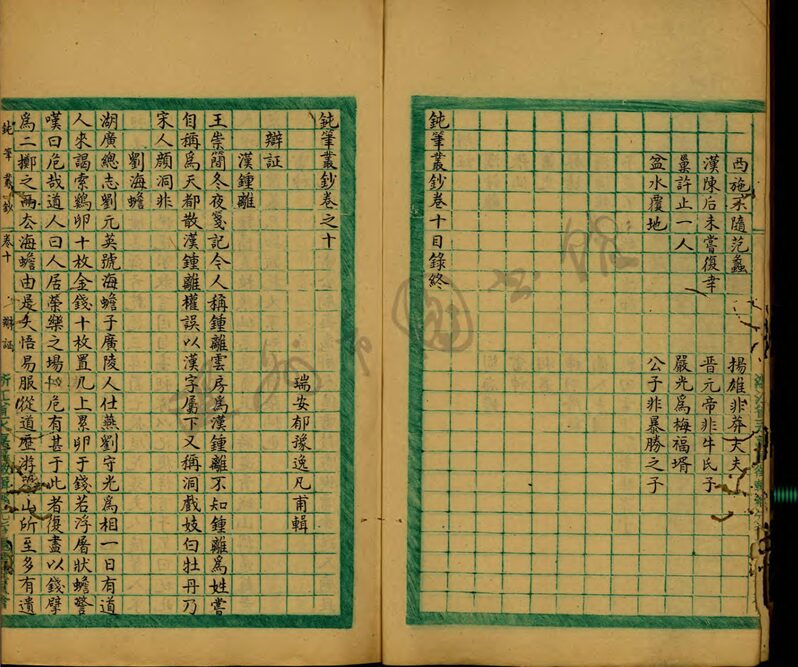 西施求隨范蠡　揚雄非莽大夫
漢陳后未嘗復幸　晉元帝非牛氏子
巢許止一人　嚴光爲梅福壻
盆水覆地　公子非暴勝之子
鈍筆叢鈔卷十目錄終
鈍筆叢鈔卷之十
瑞安郁豫逸凡甫輯
辯証
漢鍾離
王崇簡冬夜箋記今人稱鍾離雲房爲漢鍾離不知鍾離爲姓嘗
自稱爲天都散漢鍾離權誤以漢字屬下又稱洞戲妓白牡丹乃
宋人顏洞非
劉海蟾
湖廣總志劉元英號海蟾子廣陵人仕燕劉守光爲相一日有道
人來謁索鷄卵十枚金錢十枚置几上累卵于錢若浮屠狀蟾驚
嘆曰危哉道人曰人居榮樂之場其危有甚于此者復盡以錢劈
爲二擲之而去海蟾由是大悟易服從道歷游名山所至多有遺
鈍筆叢鈔　卷十　辯証